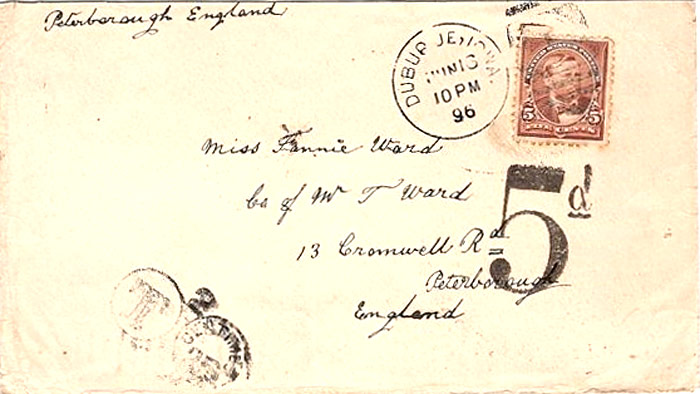 Peterborough England
DUBUQUE, IOWA.
JUN 16
10 PM
96
UNITED STATES POSTAGE
5 5
Miss Fannie Ward
Co of Mr T Ward
13 Cromwell Rd
Peterborough
England
5d
T